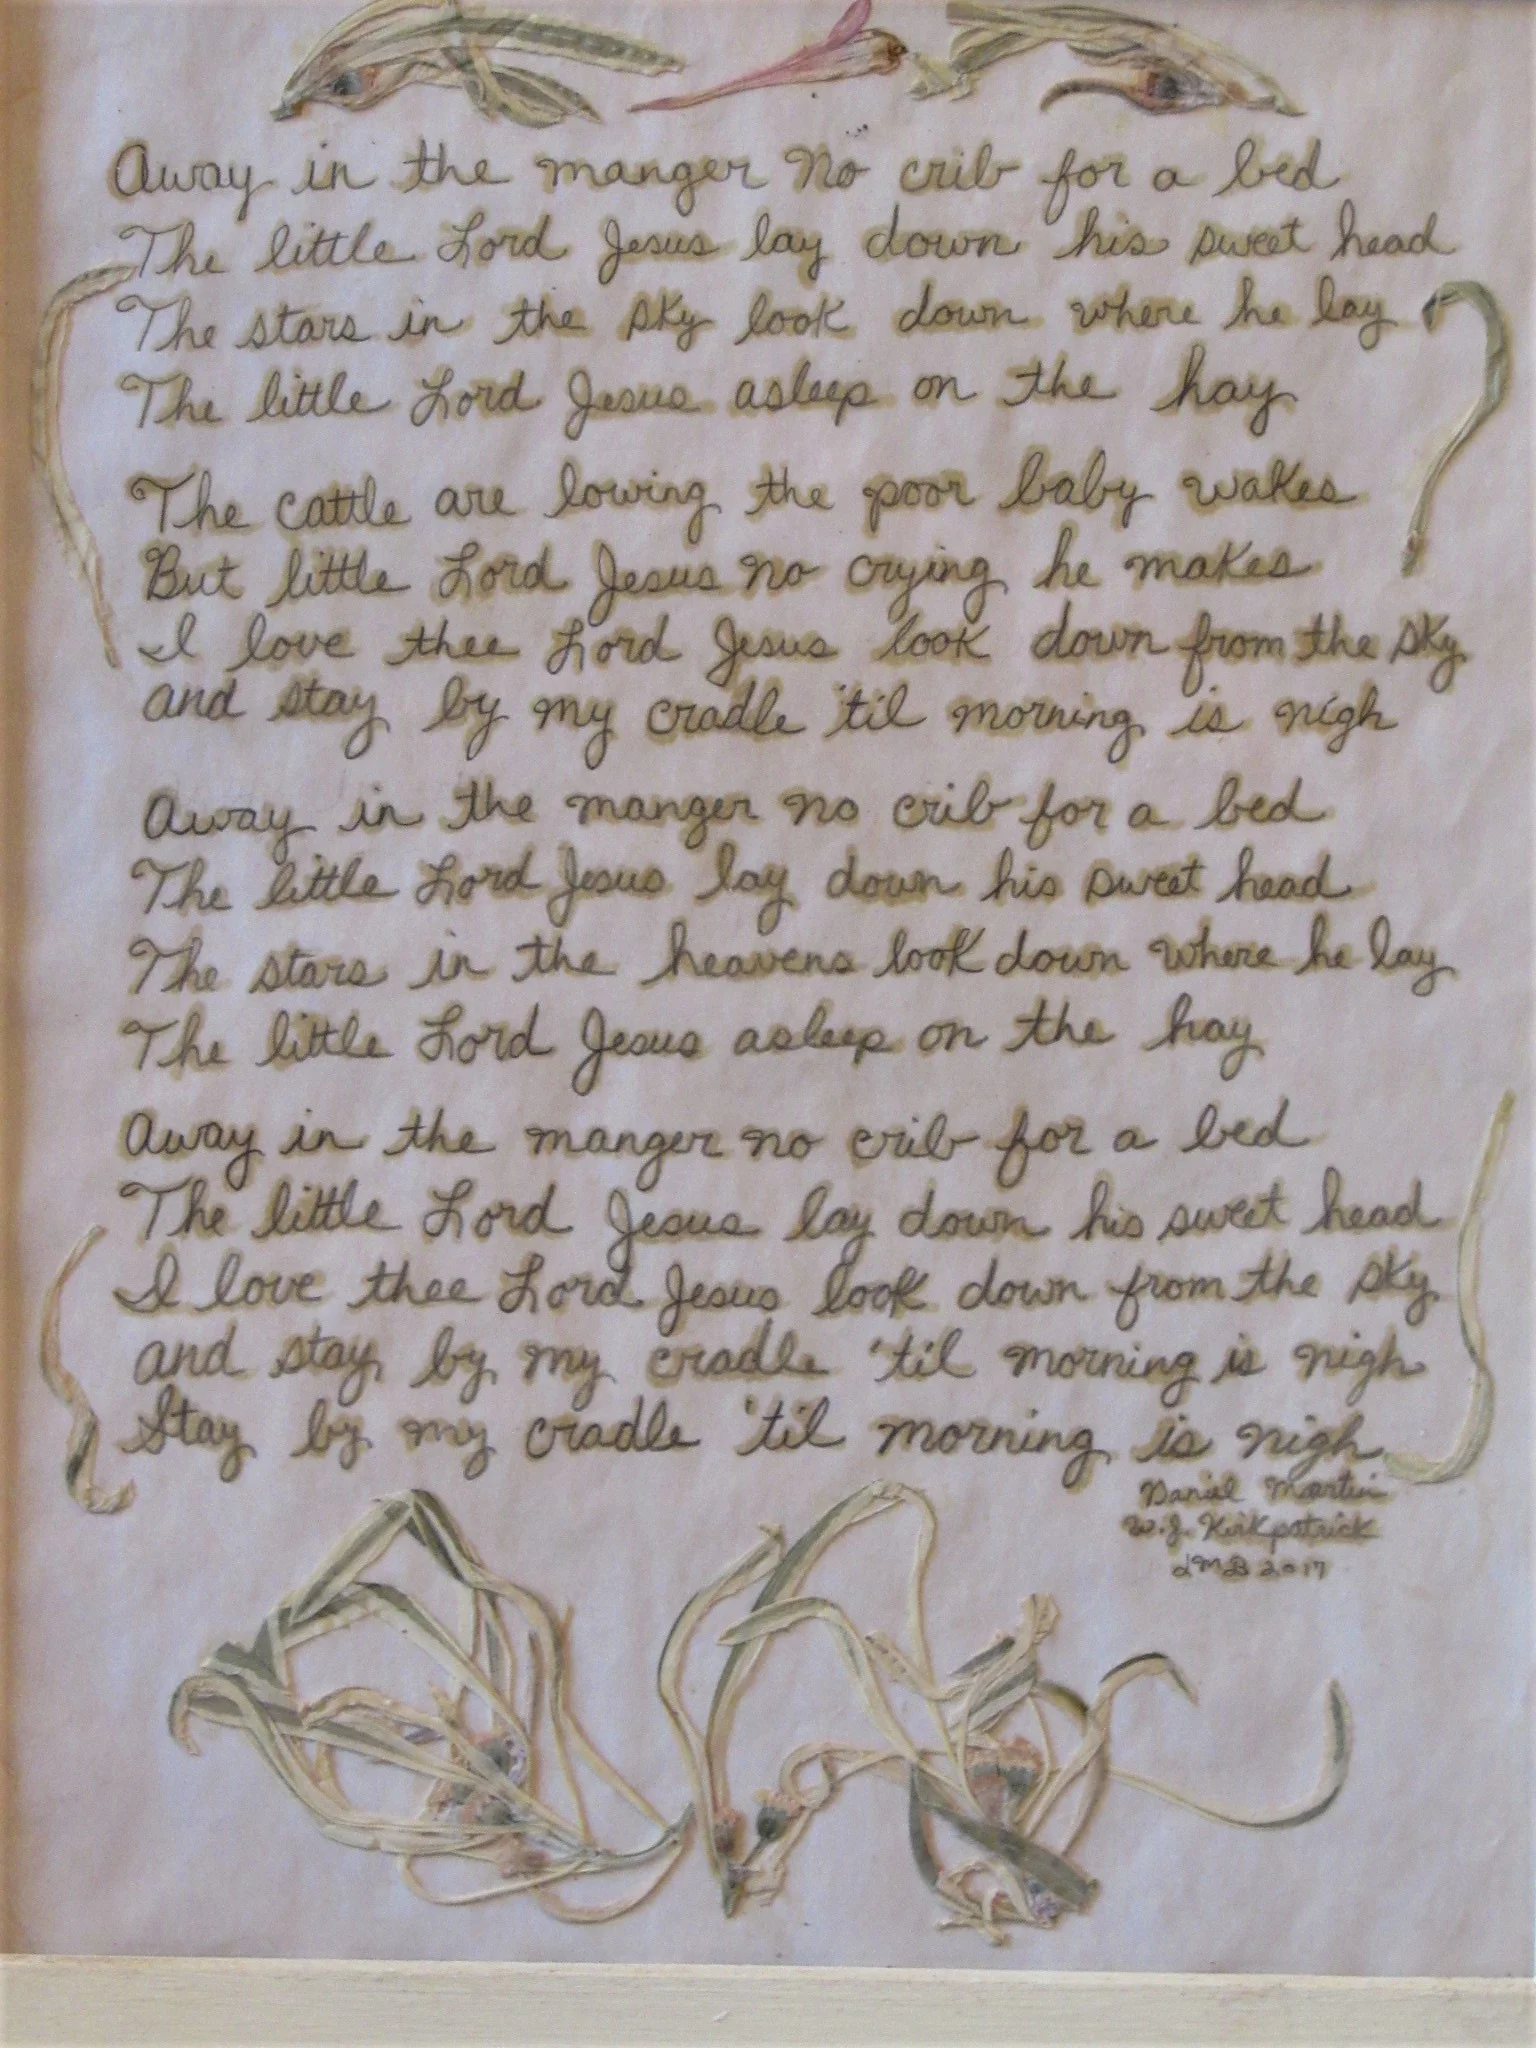 Away in the manger No crib for a bed
The little Lord Jesus lay down his sweet head
The stars in the sky look down where he lay
The little Lord Jesus asleep on the hay
The cattle are lowing the poor baby wakes
But little Lord Jesus no crying he makes
I love thee Lord Jesus look down from the sky
and stay by my cradle 'til morning is nigh
Away in the manger no crib for a bed
The little Lord Jesus lay down his sweet head
The stars in the heavens look down where he lay
The little Lord Jesus asleep on the hay
Away in the manger no crib for a bed
The little Lord Jesus lay down his sweet head
I love thee Lord Jesus look down from the sky
and stay by my cradle 'til morning is nigh
Stay by my cradle 'til morning is nigh
Daniel Martin
W.J. Kirkpatrick
LMB 2017